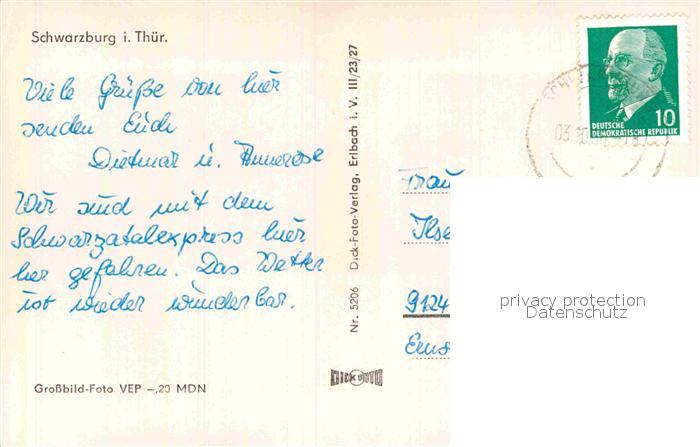 Schwarzburg i. Thür.
Viele Grüße von hier
senden Euch
Dietmar u. Annerose
Wir sind mit dem
Schwarzatalexpress hier
her gefahren. Das Wetter
ist wieder wunderbar.
Großbild-Foto VEP –,20 MDN
Nr. 5206 Dick-Foto-Verlag, Erlbach i. V. III/23/27
DICK FOTO
10
DEUTSCHE
DEMOKRATISCHE REPUBLIK
Frau
Ilse
9124
privacy protection
Datenschutz